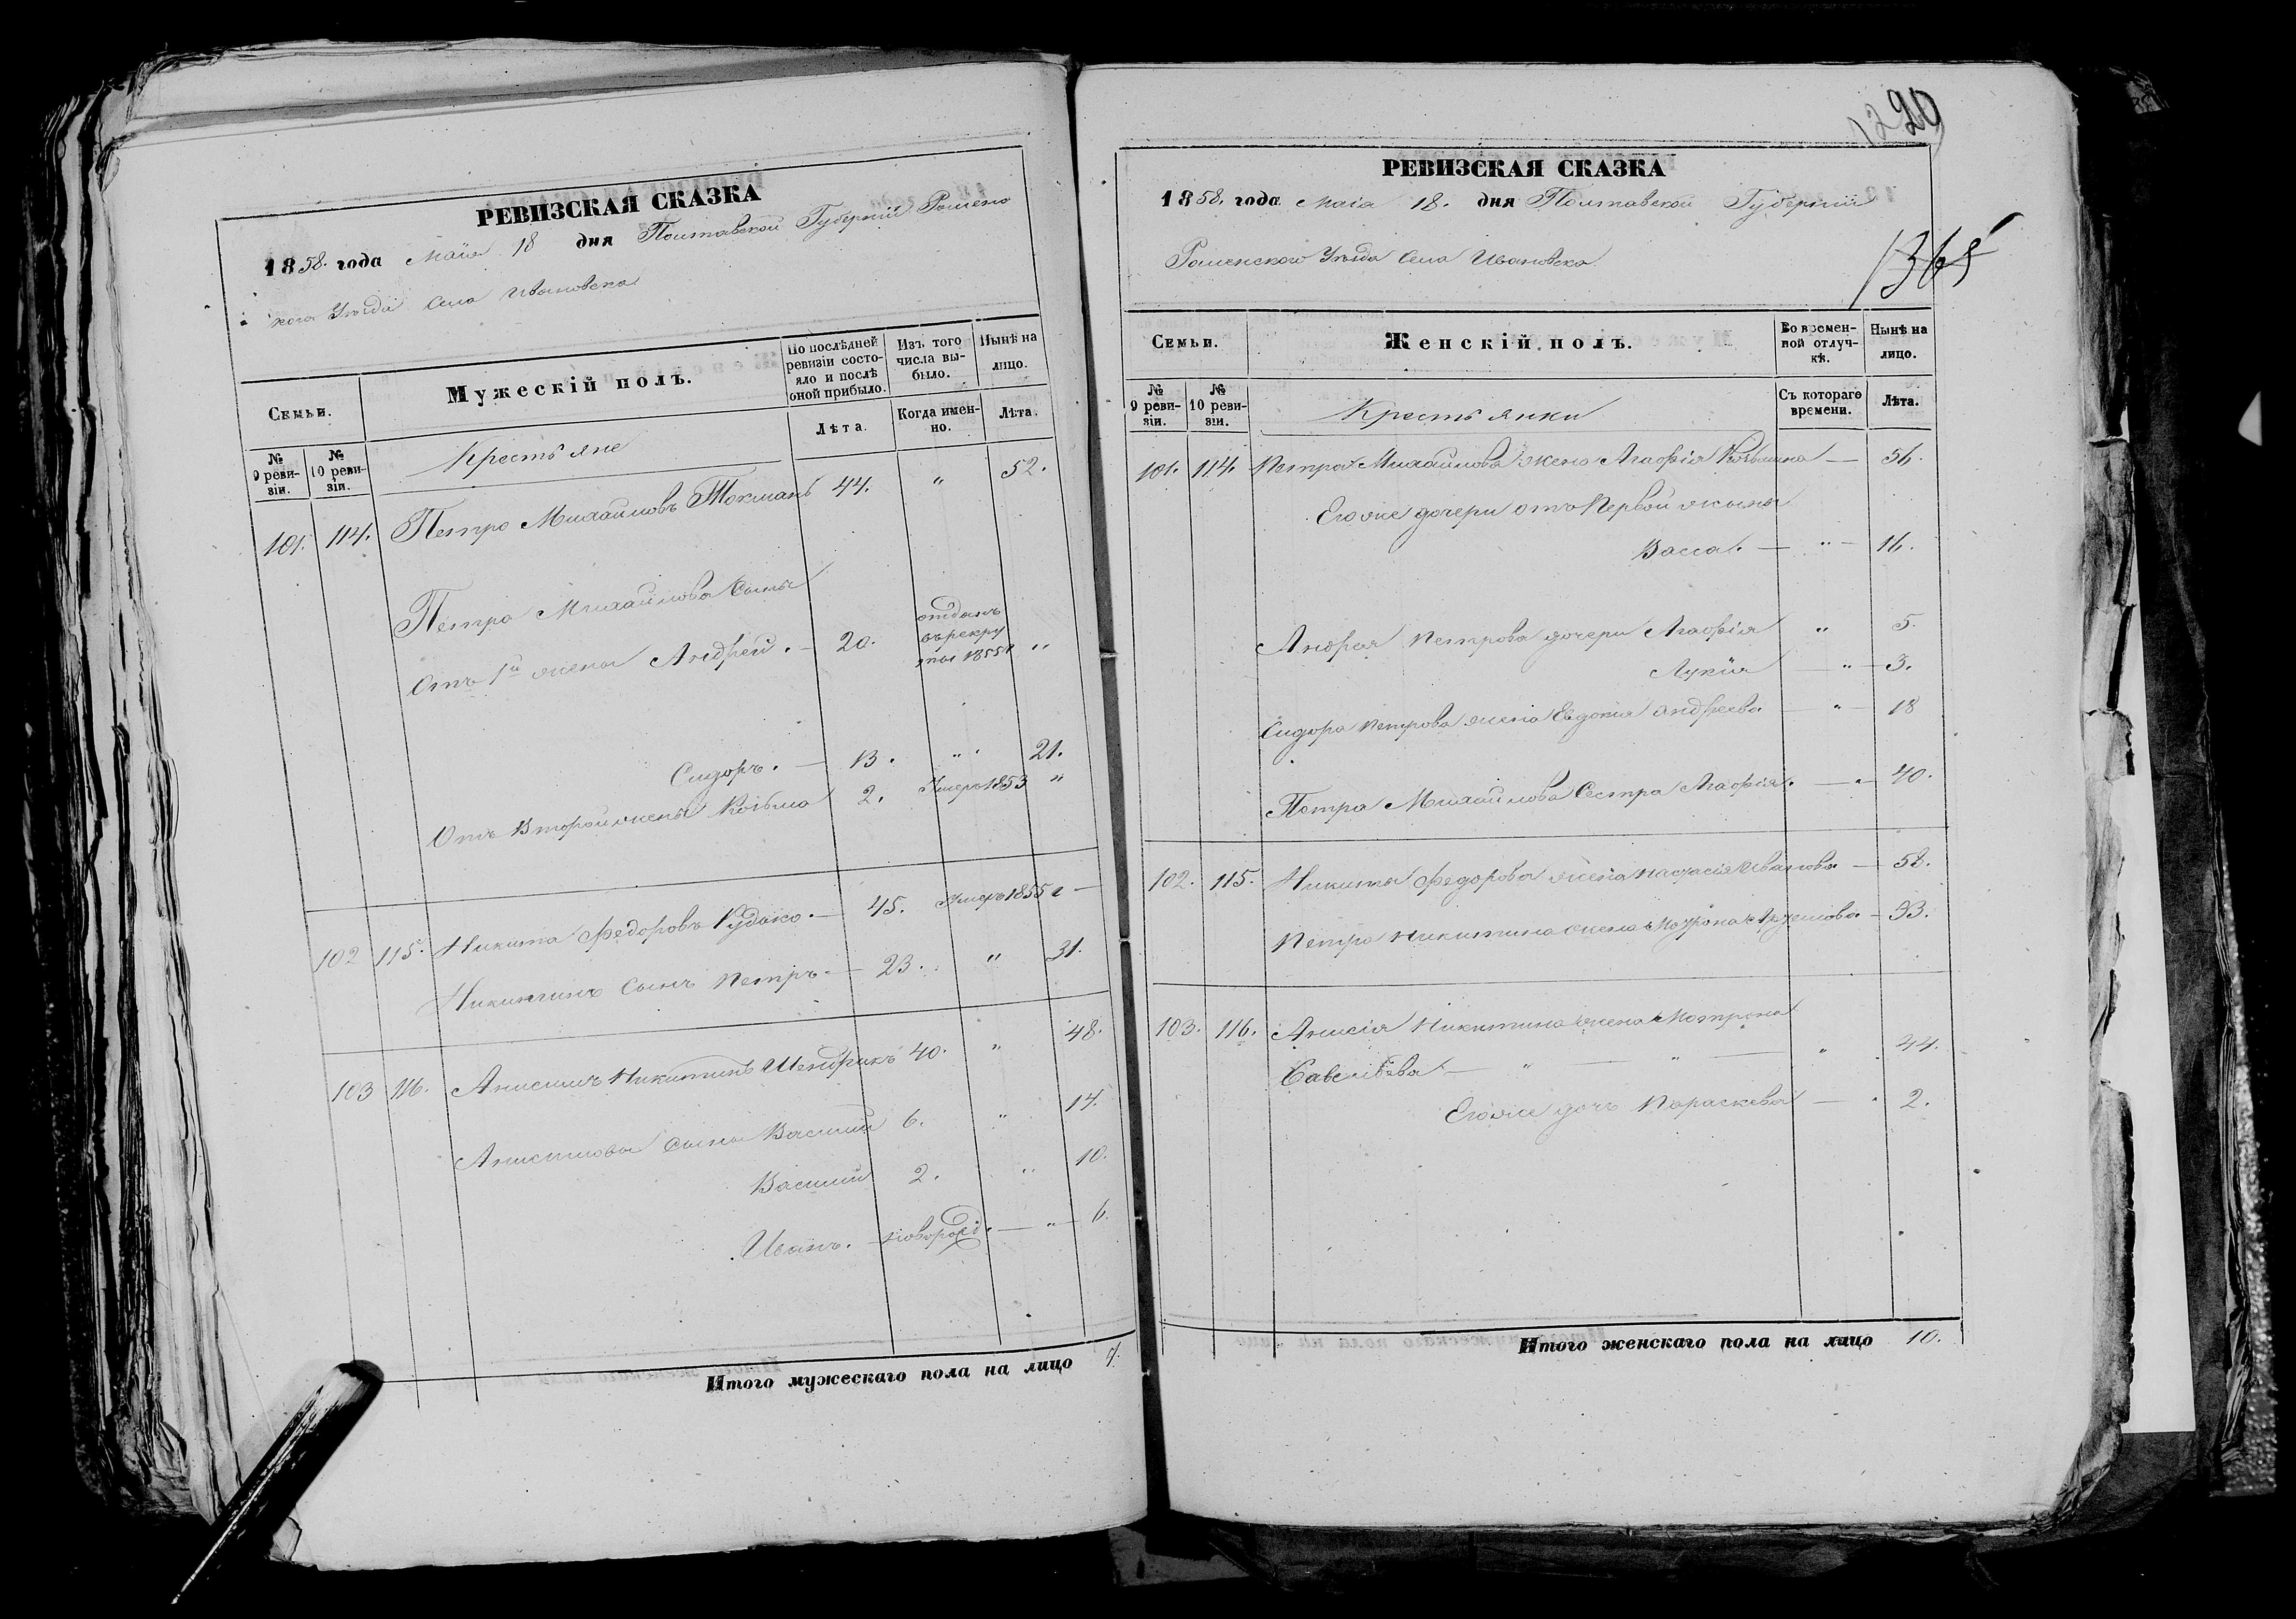 РЕВИЗСКАЯ СКАЗКА
1858. года Маія 18 дня Полтавской Губерніи Ромено
кого Уѣзда Села Ивановска
Семьи.
Мужескій полъ.
По послѣдней ревизіи состояло и послѣ оной прибыло.
Изъ того числа выбыло.
Нынѣ на лицо.
№ 9 ревизіи.
№ 10 ревизіи.
Крестьяне
Лѣта.
Когда именно.
Лѣта.
101. 114. Петро Михайловъ Токмань 44. " 52.
Петра Михайлова Сыны
Отъ 1й жены Андрей. — 20. отданъ въ рекруты 1855 г "
Сидоръ. — 13. " 21.
Отъ Второй жены Козьма 2. Умеръ 1853 "
102 115. Никита Федоровъ Кудако. — 45. Умеръ 1855 г —
Никитинъ Сынъ Петръ — 23. " 31.
103 116. Анисимъ Никитинъ Шендрикъ 40. " 48.
Анисимова Сыны Василій 6. " 14.
Василій 2. " 10.
Иванъ. — новорожд. — " — 6.
Итого мужескаго пола на лицо 7.
220
РЕВИЗСКАЯ СКАЗКА
1858. года Маія 18. дня Полтавской Губерніи
Роменского Уѣзда Села Ивановска
1365
Семьи.
Женскій полъ.
Во временной отлучкѣ.
Нынѣ на лицо.
№ 9 ревизіи.
№ 10 ревизіи.
Крестьянки
Съ котораго времени.
Лѣта.
101. 114. Петра Михайлова жена Агафія Козьмина — 56.
Его же дочери отъ Первой жены
Васса. — " — 16.
Андрея Петрова дочери Агафія " 5.
Лукія — " — 3.
Сидора Петрова жена Евдокія Андреева — " — 18
Петра Михайлова Сестра Агафія. — " — 40.
102. 115. Никиты Федорова жена Настасія Иванова — 58.
Петра Никитина жена Мотрона — 33.
103. 116. Анисія Никитина жена Мотрона
Савельева — " — " — " 44.
Его же дочь Параскева — " 2.
Итого женскаго пола на лицо 10.